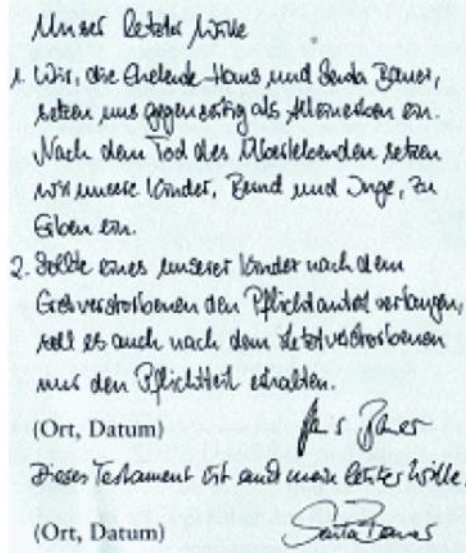 Unser letzter Wille
1. Wir, die Eheleute Hans und Senta Bauer,
setzen uns gegenseitig als Alleinerben ein.
Nach dem Tod des Überlebenden setzen
wir unsere Kinder, Bernd und Inge, zu
Erben ein.
2. Sollte eines unserer Kinder nach dem
Erstverstorbenen den Pflichtanteil verlangen,
soll es auch nach dem Letztverstorbenen
nur den Pflichtteil erhalten.
(Ort, Datum) Hans Bauer
Dieses Testament ist auch mein letzter Wille.
(Ort, Datum) Senta Bauer